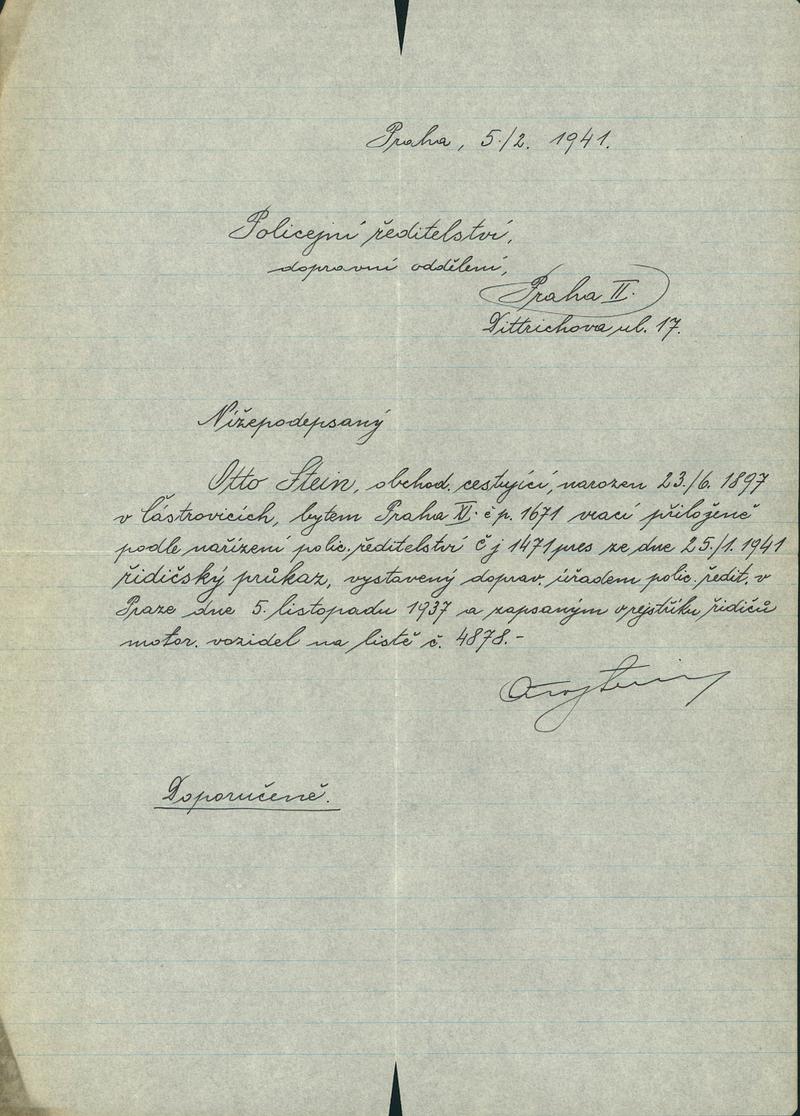 Praha, 5./2. 1941.
Policejní ředitelství,
dopravní oddělení,
Praha II.
Dittrichova ul. 17.
Nížepodepsaný
Otto Stein, obchod. cestující, narozen 23./6. 1897
v Částrovicích, bytem Praha XI. čp. 1671 vrací přiloženě
podle nařízení polic. ředitelství č j 1471 pres ze dne 25./1. 1941
řidičský průkaz, vystavený doprav. úřadem polic. ředit. v
Praze dne 5. listopadu 1937 a zapsaným v rejstříku řidičů
motor. vozidel na listě č. 4878.-
Doporučeně.